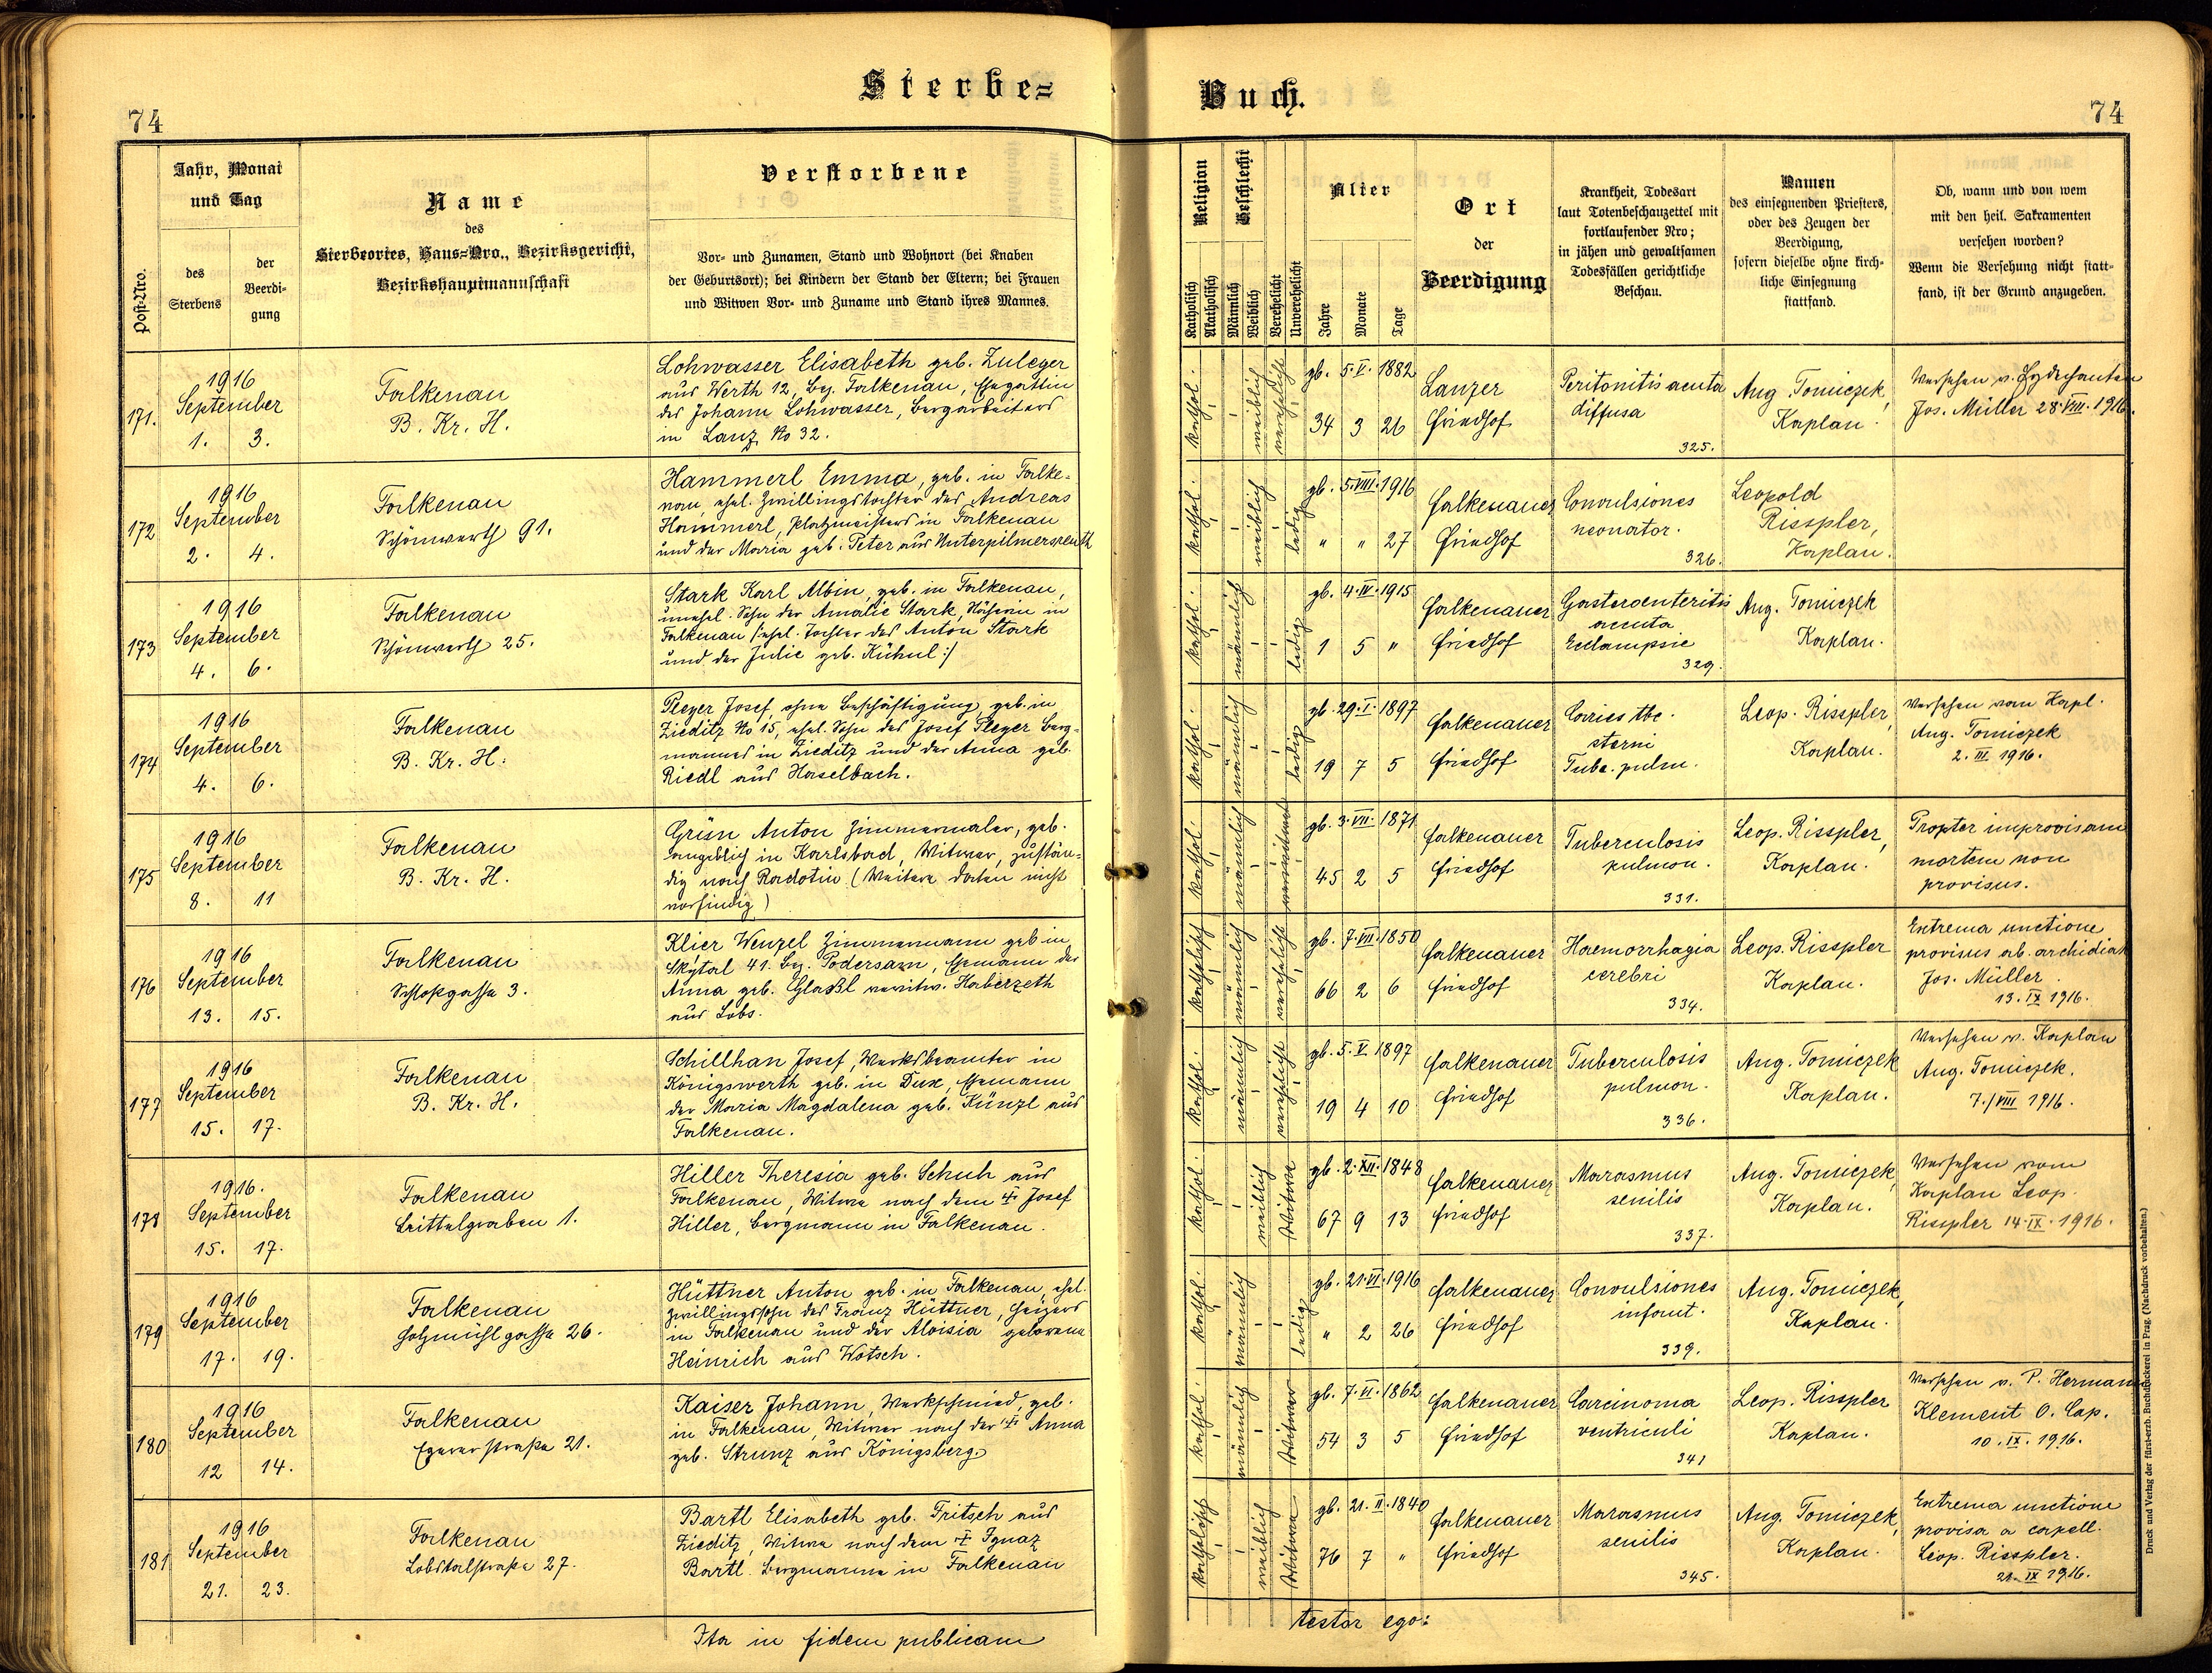 Sterbe=
Buch.
74
74
Post-Nro.
Jahr, Monat
und Tag
des
Sterbens
der
Beerdi-
gung
Name
des
Sterbeortes, Haus=Nro., Bezirksgericht,
Bezirkshauptmannschaft
Verstorbene
Vor- und Zunamen, Stand und Wohnort (bei Knaben
der Geburtsort); bei Kindern der Stand der Eltern; bei Frauen
und Witwen Vor- und Zuname und Stand ihres Mannes.
Religion
Katholisch
Akatholisch
Geschlecht
Männlich
Weiblich
Verehelicht
Unverehelicht
Alter
Jahre
Monate
Tage
Ort
der
Beerdigung
Krankheit, Todesart
laut Totenbeschauzettel mit
fortlaufender Nro;
in jähen und gewaltsamen
Todesfällen gerichtliche
Beschau.
Namen
des einsegnenden Priesters,
oder des Zeugen der
Beerdigung,
sofern dieselbe ohne kirch-
liche Einsegnung
stattfand.
Ob, wann und von wem
mit den heil. Sakramenten
versehen worden?
Wenn die Versehung nicht statt-
fand, ist der Grund anzugeben.
171.
1916
September
1. 3.
Falkenau
B. Kr. H.
Lohwasser Elisabeth geb. Zuleger
aus Werth 12, Bez. Falkenau, Ehegattin
des Johann Lohwasser, Bergarbeiters
in Lanz No 32.
kathol.
weiblich
verehelicht
gb. 5. V. 1882
34 3 26
Lanzer
Friedhof
Peritonitis acuta
diffusa
325.
Aug. Tomiczek,
Kaplan.
Versehen v.
Jos. Müller 28. VIII. 1916.
172
1916
September
2. 4.
Falkenau
Schönwerth 91.
Hammerl Emma, geb. in Falke-
nau, ehel. Zwillingstochter des Andreas
Hammerl, Platzmeisters in Falkenau
und der Maria geb. Peter aus Unterpilmersreuth
kathol.
weiblich
ledig
gb. 5. VIII. 1916
" " 27
Falkenauer
Friedhof
Convulsiones
neonator.
326.
Leopold
Risspler,
Kaplan.
173
1916
September
4. 6.
Falkenau
Schönwerth 25.
Stark Karl Albin, geb. in Falkenau,
unehel. Sohn der Amalie Stark, Näherin in
Falkenau /:ehel. Tochter des Anton Stark
und der Julie geb. Kühnl:/
kathol.
männlich
ledig
gb. 4. IV. 1915
1 5 "
Falkenauer
Friedhof
Gasteroenteritis
acuta
Eclampsie
329.
Aug. Tomiczek
Kaplan.
174
1916
September
4. 6.
Falkenau
B. Kr. H.
Pleyer Josef, ohne Beschäftigung, geb. in
Zieditz No 15, ehel. Sohn des Josef Pleyer Berg-
mannes in Zieditz und der Anna geb.
Riedl aus Haselbach.
kathol.
männlich
ledig
gb. 29. I. 1897
19 7 5
Falkenauer
Friedhof
Caries tbc.
sterni
Tube. pulm.
Leop. Risspler,
Kaplan.
Versehen vom Kapl.
Aug. Tomiczek
2. III. 1916.
175
1916
September
8. 11
Falkenau
B. Kr. H.
Grün Anton Zimmermaler, geb.
angeblich in Karlsbad, Witwer, zustän-
dig nach Radotin (Weitere Daten nicht
vorfindig)
kathol.
männlich
verwitwet
gb. 3. VII. 1871
45 2 5
Falkenauer
Friedhof
Tuberculosis
pulmon.
331.
Leop. Risspler,
Kaplan.
Propter improvisam
mortem non
provisus.
176
1916
September
13. 15.
Falkenau
Schloßgasse 3.
Klier Wenzel Zimmermann geb. in
Skytal 41. Bez. Podersam, Ehemann der
Anna geb. Glaßl verwitw. Haberzeth
aus Lobs.
katholisch
männlich
verehelicht
gb. 7. VII. 1850
66 2 6
Falkenauer
Friedhof
Haemorrhagia
cerebri
334.
Leop. Risspler
Kaplan.
Extrema unctione
provisus ab. archidiak
Jos. Müller
13. IX 1916.
177
1916
September
15. 17.
Falkenau
B. Kr. H.
Schillhan Josef, Werksbeamter in
Königswerth geb. in Dux, Ehemann
der Maria Magdalena geb. Künzl aus
Falkenau.
kathol.
männlich
verehelicht
gb. 5. V. 1897
19 4 10
Falkenauer
Friedhof
Tuberculosis
pulmon.
336.
Aug. Tomiczek
Kaplan.
Versehen v. Kaplan
Aug. Tomiczek.
7./VIII 1916.
178
1916.
September
15. 17.
Falkenau
Brittelgraben 1.
Hiller Theresia geb. Schuh aus
Falkenau, Witwe nach dem † Josef
Hiller, Bergmann in Falkenau.
kathol.
weiblich
Witwe
gb. 2. XII. 1848
67 9 13
Falkenauer
Friedhof
Marasmus
senilis
337.
Aug. Tomiczek,
Kaplan.
Versehen vom
Kaplan Leop.
Risspler 14. IX. 1916.
179
1916
September
17. 19.
Falkenau
Holzmühlgasse 26.
Hüttner Anton geb. in Falkenau, ehel.
Zwillingssohn des Franz Hüttner, Heizers
in Falkenau und der Aloisia geborene
Heinrich aus Wotsch.
kathol.
männlich
ledig
gb. 21. VI. 1916
" 2 26
Falkenauer
Friedhof
Convulsiones
infant.
339.
Aug. Tomiczek,
Kaplan.
180
1916
September
12 14.
Falkenau
Egererstraße 21.
Kaiser Johann, Werkschmied, geb.
in Falkenau, Witwer nach der † Anna
geb. Strunz aus Königsberg
kathol.
männlich
Witwer
gb. 7. VI. 1862
54 3 5
Falkenauer
Friedhof
Carcinoma
ventriculi
341
Leop. Risspler
Kaplan.
Versehen v. P. Hermann
Klement O. Cap.
10. IX. 1916.
181
1916
September
21. 23.
Falkenau
Lobstalstraße 27.
Bartl Elisabeth geb. Fritsch aus
Zieditz, Witwe nach dem † Ignaz
Bartl Bergmanne in Falkenau
katholisch
weiblich
Witwe
gb. 21. II. 1840
76 7 "
Falkenauer
Friedhof
Marasmus
senilis
345.
Aug. Tomiczek,
Kaplan.
Extrema unctione
provisa a capell.
Leop. Risspler.
21. IX 1916.
Ita in fidem publicam
testor ego:
Druck und Verlag der fürst-erzb. Buchdruckerei in Prag. (Nachdruck vorbehalten.)